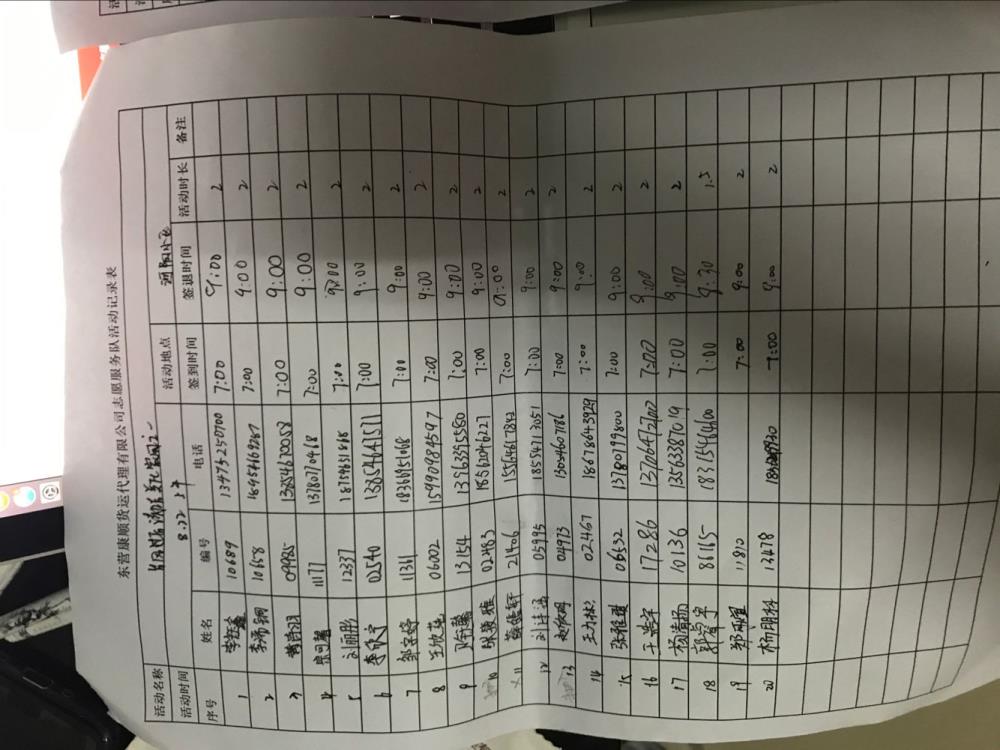 东营康顺货运代理有限公司志愿服务队活动记录表
活动名称 活动地点
活动时间 8:22
序号 姓名 编号 电话 签到时间 签退时间 活动时长 备注
1 10689 13475250700 7:00 9:00 2
2 10658 7:00 9:00 2
3 09925 13854670058 7:00 9:00 2
4 11177 13780770468 7:00 9:00 2
5 刘丽彤 12337 7:00 9:00 2
6 02540 13854641511 7:00 9:00 2
7 邹京婷 11311 7:00 9:00 2
8 王欣苑 06002 15990984597 7:00 9:00 2
9 陈馨 13154 13963395580 7:00 9:00 2
10 02483 18562046227 7:00 9:00 2
11 21406 15564617842 7:00 9:00 2
12 刘洋涵 05995 18554713051 7:00 9:00 2
13 04973 15054607786 7:00 9:00 2
14 王林林 02467 18678643929 7:00 9:00 2
15 张雅璇 06532 13780799800 7:00 9:00 2
16 于浩宇 17286 13706472002 7:00 9:00 2
17 杨浩扬 10136 13563387019 7:00 9:00 2
18 郭睿宇 86115 18315464600 7:00 8:30 1.5
19 11810 7:00 9:00 2
20 杨朋科 13478 7:00 9:00 2